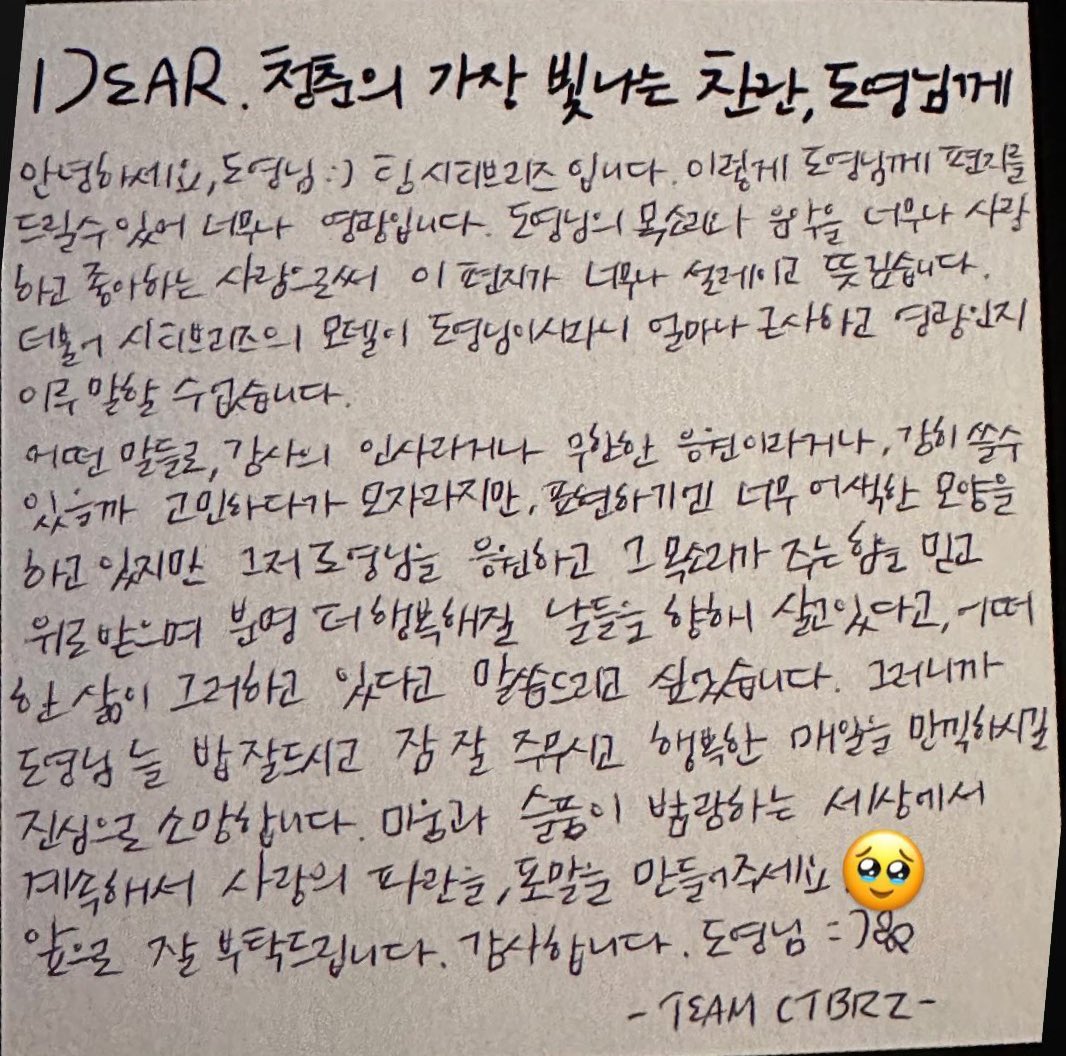 DEAR. 청춘의 가장 빛나는 찬란, 도영님께
안녕하세요, 도영님 :) 팀 시티브리즈 입니다. 이렇게 도영님께 편지를
드릴수 있어 너무나 영광입니다. 도영님의 목소리와 음악을 너무나 사랑
하고 좋아하는 사람으로써 이 편지가 너무나 설레이고 뜻깊습니다.
더불어 시티브리즈의 모델이 도영님이시라니 얼마나 근사하고 영광인지
이루 말할 수 없습니다.
어떤 말들로, 감사의 인사라거나 무한한 응원이라거나, 감히 쓸수
있을까 고민하다가 모자라지만, 표현하기엔 너무 어색한 모양을
하고 있지만 그저 도영님을 응원하고 그 목소리가 주는 힘을 믿고
위로 받으며 분명 더 행복해질 날들을 향해 살고있다고, 어떠
한 삶이 그러하고 있다고 말씀드리고 싶었습니다. 그러니까
도영님 늘 밥 잘드시고 잠 잘 주무시고 행복한 매일을 만끽하시길
진심으로 소망합니다. 미움과 슬픔이 범람하는 세상에서
계속해서 사랑의 파란을, 포말을 만들어주세요.🥹
앞으로 잘 부탁드립니다. 감사합니다. 도영님 =)
- TEAM CTBRZ -